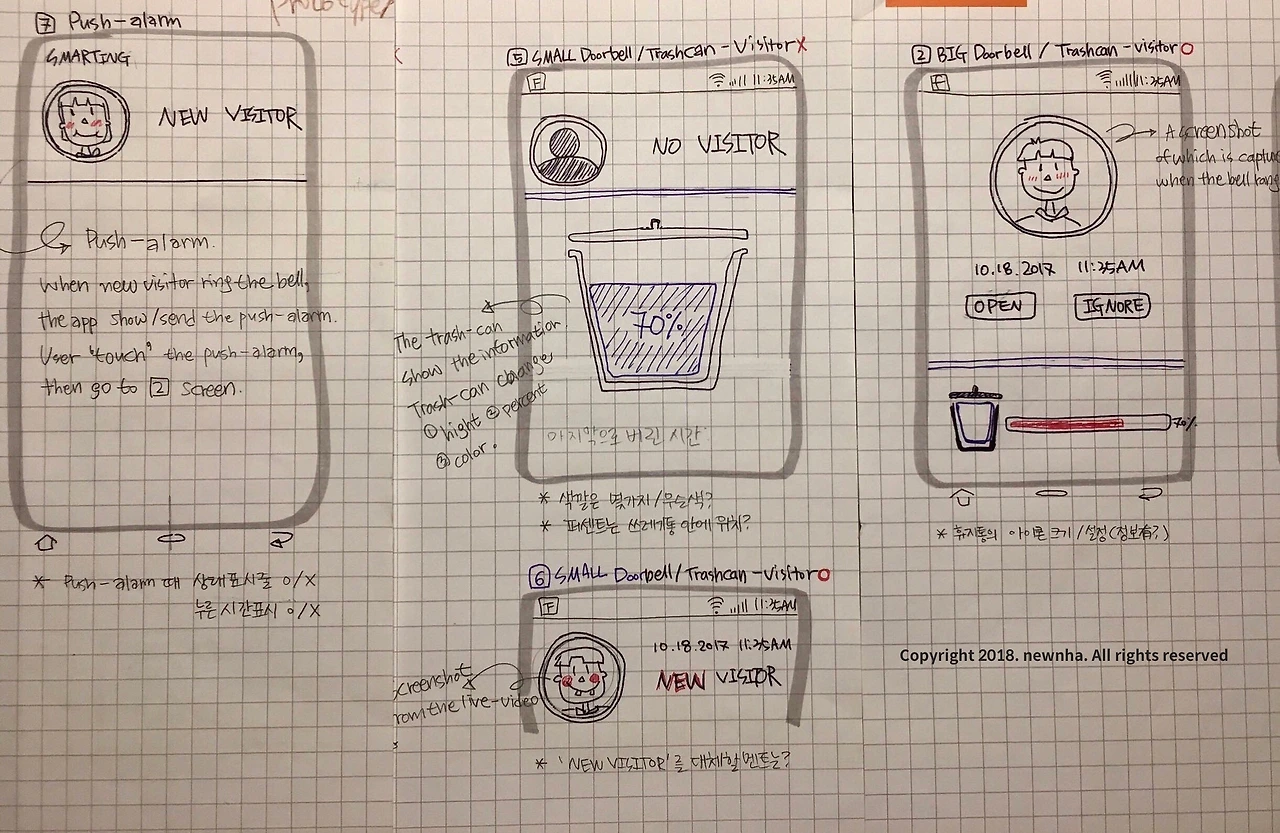 prototype
7 Push-alarm
SMARTING
NEW VISITOR
Push-alarm.
When new visitor ring the bell,
the app show/send the push-alarm.
User "touch" the push-alarm,
then go to 2 screen.
* Push-alarm 때 상태표시줄 O/X
누른 시간표시 O/X
5 SMALL Doorbell/Trashcan-Visitor X
F 11:35AM
NO VISITOR
70%
The trash-can
show the information.
Trash-can change
① hight ② percent
③ color.
마지막으로 버린 시간
* 색깔은 몇가지/무슨색?
* 퍼센트는 쓰레기통 안에 위치?
6 SMALL Doorbell/Trashcan-Visitor O
F 11:35AM
10.18.2017 11:35AM
NEW VISITOR
screenshot
from the live-video
* 'NEW VISITOR'를 대체할 멘트는?
2 BIG Doorbell/Trashcan-visitor O
F 11:35AM
A screenshot
of which is captu
when the bell rang
10.18.2017 11:35AM
OPEN IGNORE
70%
* 휴지통의 아이콘 크기/설정(정보有?)
Copyright 2018. newnha. All rights reserved